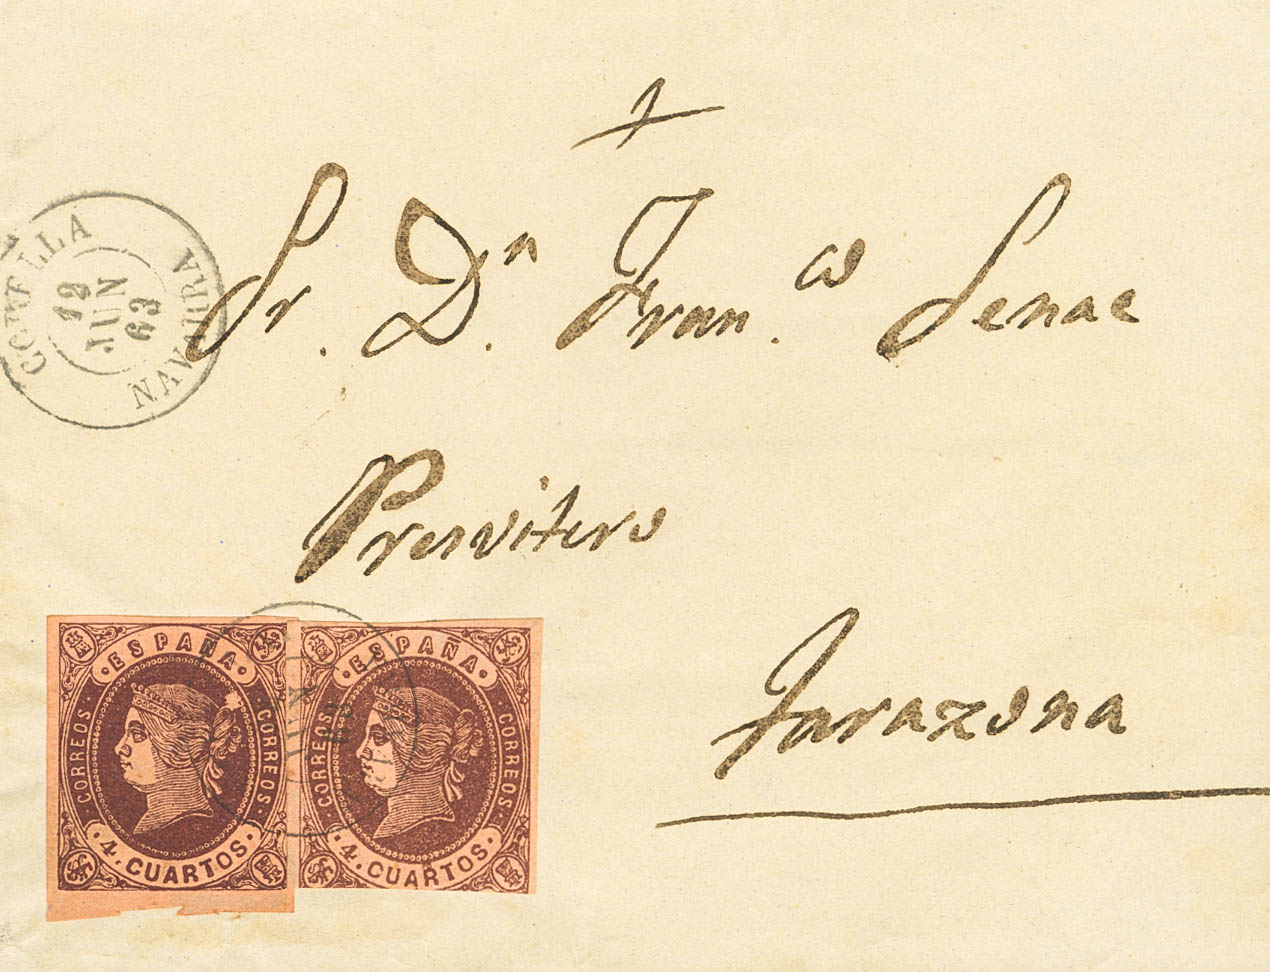 Sr. Dn. Fran.co Senac
CORELLA
12
JUN
63
NAVARRA
Presvitero
Tarazona
·ESPAÑA·
CORREOS
CORREOS
·4. CUARTOS·
·ESPAÑA·
CORREOS
CORREOS
·4. CUARTOS·